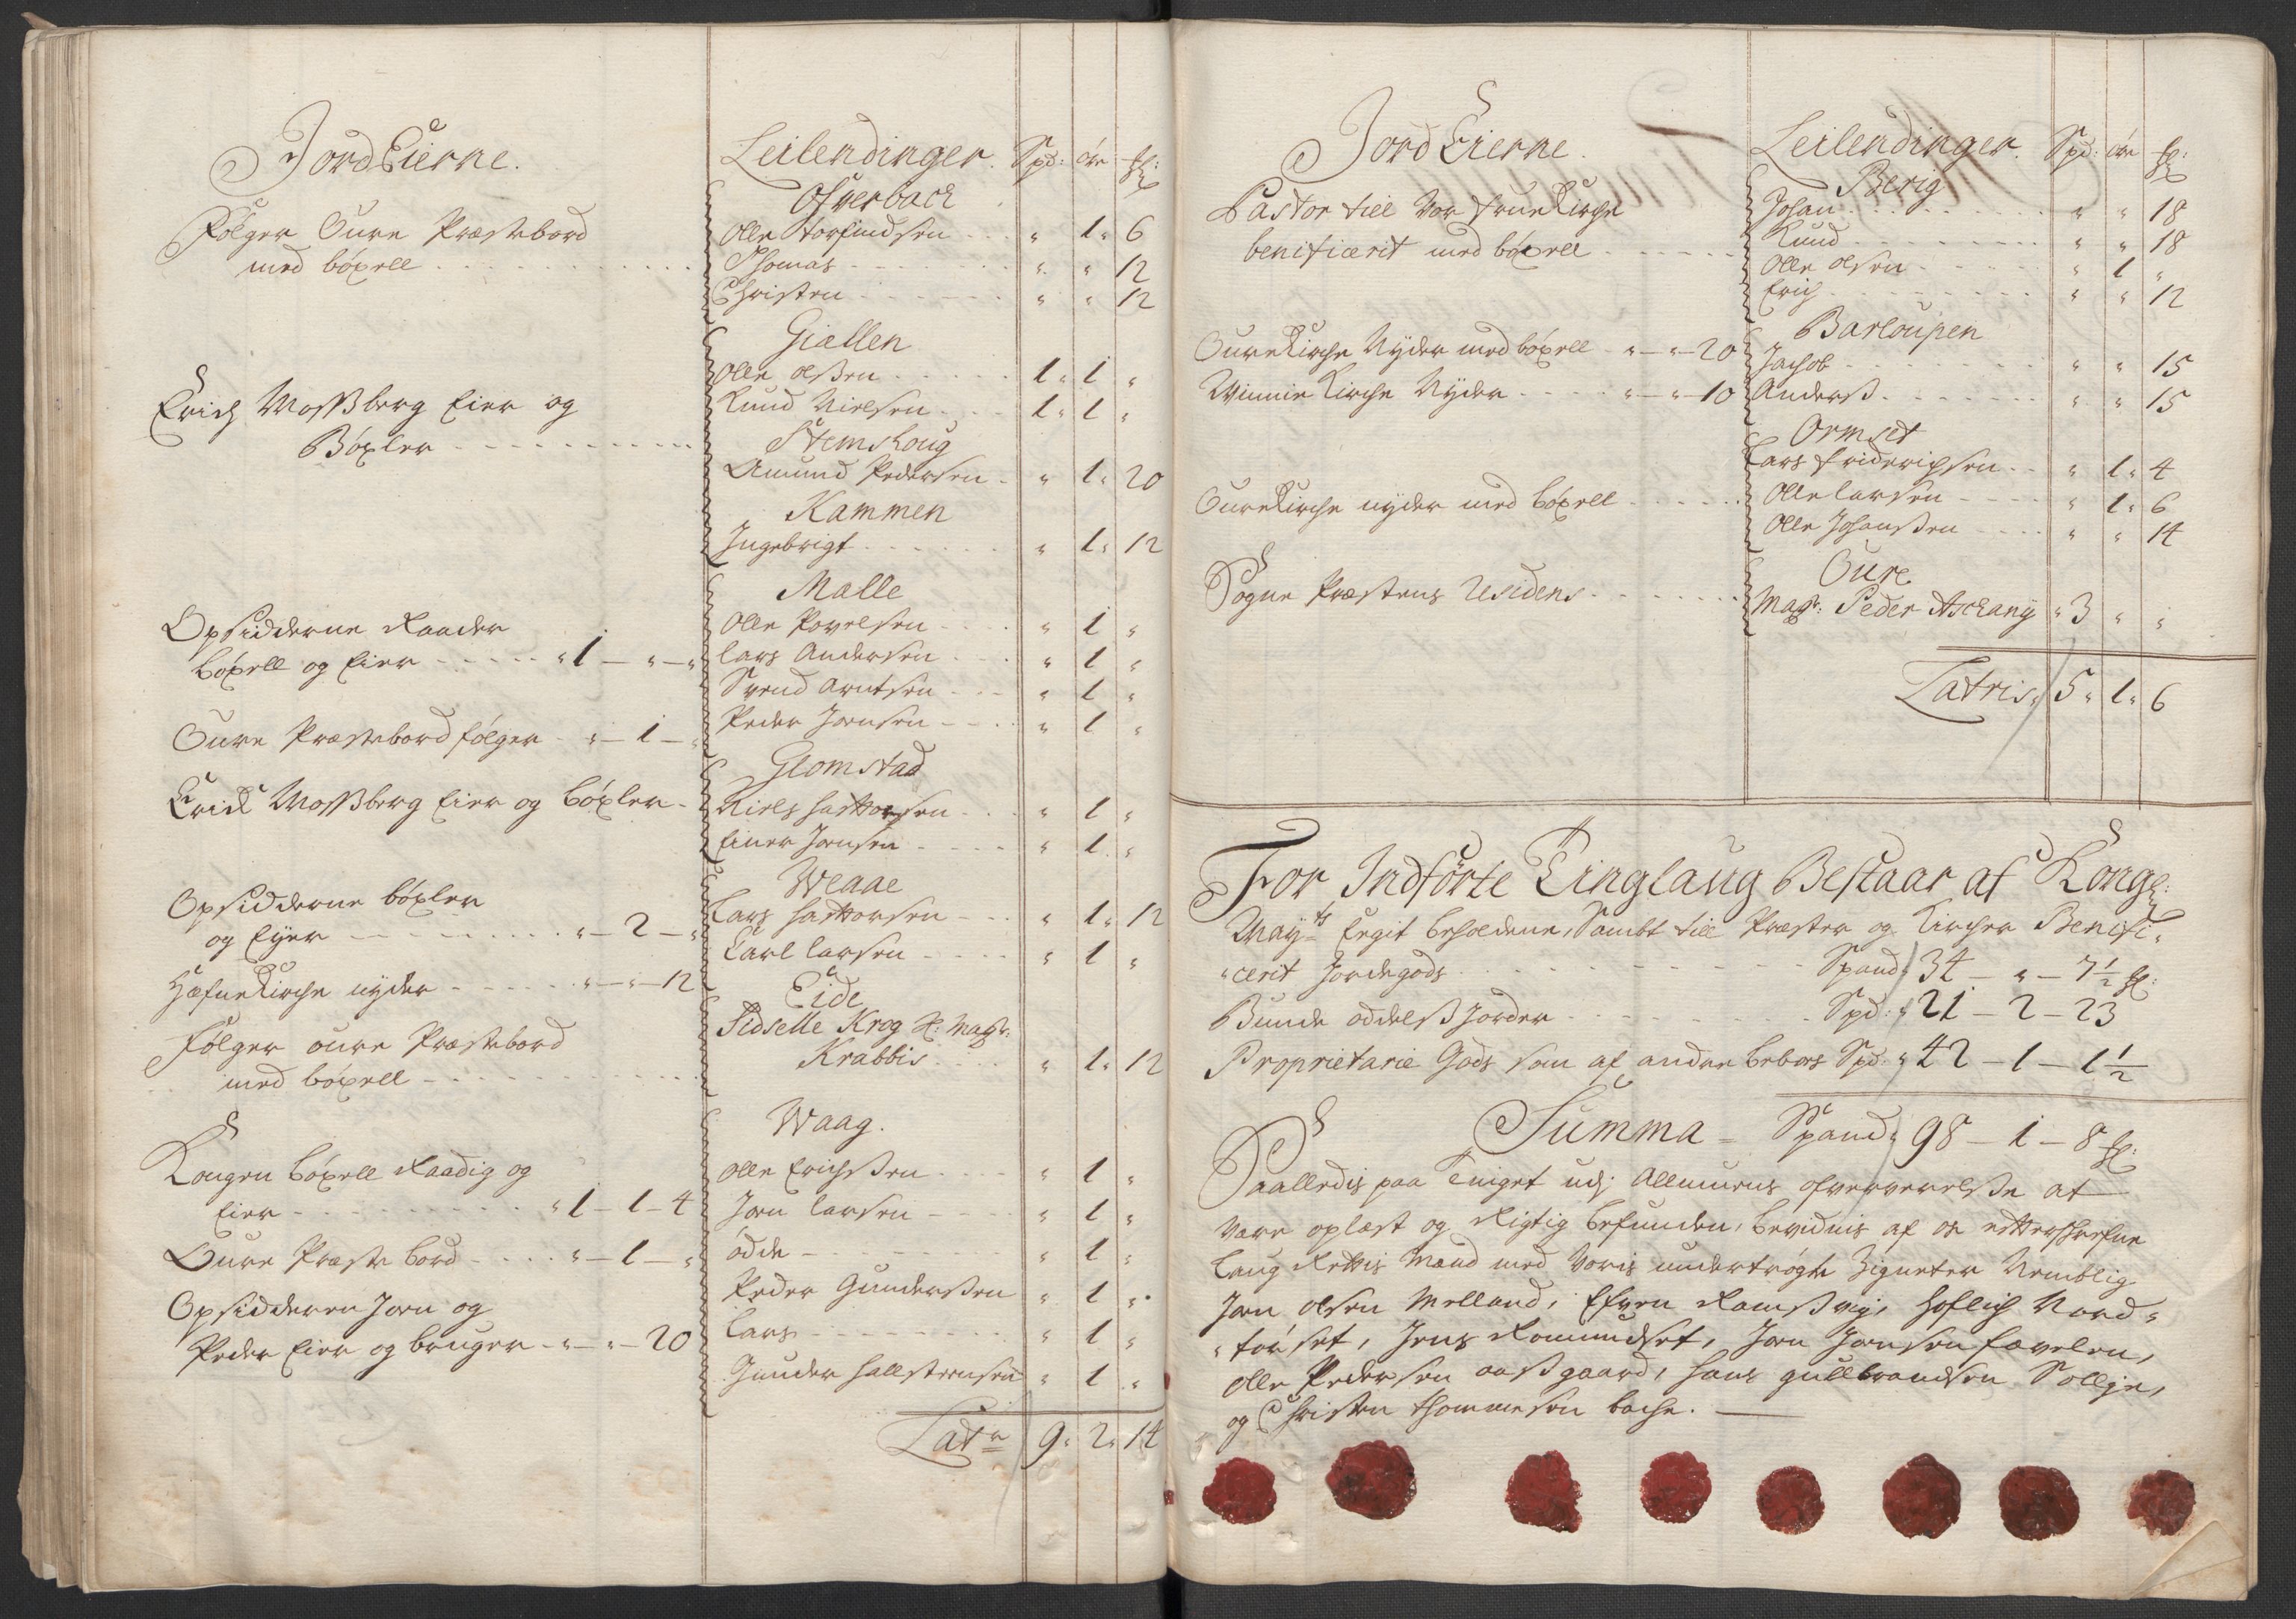 Jord Eierne.
Følger Oure Præstebord
med böxell
Erich Mossberg Eier og
Böxler
Opsidderne Raader
böxell og Eier " 1 — " — "
Oure Præstebord følger " — 1 — "
Erich Mossberg Eier og böxler
Opsidderne böxler
og Eÿer " — 2 — "
Hæfne Kirche nÿder " — " — 12
Følger oure Præstebord
med böxell
Kongen böxell Raadig og
Eier " 1 — 1 — 4
Oure Præste bord " — 1 — "
Opsidderen Jon og
Peder Eier og bruger " — " — 20
Leilendinger. Spd: öre
Ofverback
Olle Torfindsen " 1 " 6
Thomas " " 12
Christen " " 12
Giællen
Olle olsßen 1 " 1 "
Knud Nielsen 1 " 1 "
Stemshoug
Amund Pedersen " 1 " 20
Kammen
Ingebrigt " 1 " 12
Malle
Olle Povelsen " 1 "
Lars Andersen " 1 "
Svend Arntsen " 1 "
Peder Jonsen " 1 "
Glomstad
Niels halvorsen " 1 "
Einer Jonsen " 1 "
Weaae
Lars halvorsen " 1 " 12
Carl Larsen " 1 "
Eide
Sidselle Krog Magr:
Krabbis " 1 " 12
Waag.
Olle Erichsßen " 1 "
Jon Larsen " 1 "
ödde " 1 "
Peder Gundersßen " 1 "
Lars " 1 "
Gunder hallsteensen " 1 "
Lat: 9 " 2 " 14
Jord Eierne.
Pastor till Vor frue Kirche
beneficerit med böxell
Oure Kirche Nÿder med böxell " — " — 20
Winnie Kirche Nÿder " — " — 10
Oure Kirche nÿder med böxell
Sogne Præstens Residens
Leilendinger. Spd: öre
Berig
Johan " " 18
Knud " " 18
Olle olsen " 1 "
Erich " " 12
Barloupen
Jachob " " 15
Anderß " " 15
Ormset
Lars friderichsen " 1 " 4
Olle Larsen " 1 " 6
Olle Johanßen " " 14
Oure
Magr: Peder Aschanÿ " 3 " "
Latris 5 " 1 " 6
For Indförte Tinglaug Bestaar af Kongl:
Mayts Eegit beholdene, Sambt till Præster og Kircher Benifi-
cerit Jordegods Spand 34 — " — 7½
Bunde oddelß Jorder Spd: 21 — 2 — 23
Proprietarie Gods som af andre bebos Spd: 42 — 1 — 1½
Summa Spand 98 — 1 — 8
Saalledis paa Tinget udj Allmuens ofververelße at
være oplæst og Rigtig befunden, bevidnis af os efterschrefne
Laug Rettis Mænd med Voris undertrögte Zigneter Nemblig
Jon olsen Melland, Efven Ramsßvig, hoflich Nord-
-törset, Jens Romundset, Jon Jonsen fævelen,
Olle Pedersen aaßgaard, hans gullbrandsen Sollje,
og Christen thommesen bache.